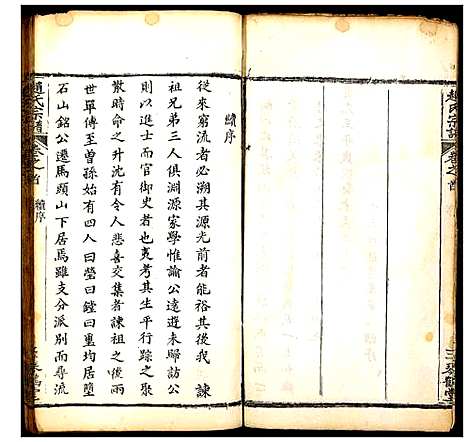 趙氏宗譜
卷之首
三琴鶴堂
續序
從來窮流者必溯其源光前者能裕其後我 諫
祖兄弟三人俱淵源家學惟諭公遠遊未歸訪公
則以進士而官御史者也夷考其生平行踪之聚
散時命之升沈有令人悲喜交集者諫祖之後兩
世單傳至曾孫始有四人曰瑩曰鏜曰里均居墮
石山銘公遷馬頭山下居焉雖支分派別而尋流
趙氏宗譜
卷之首
續序
琴鶴堂